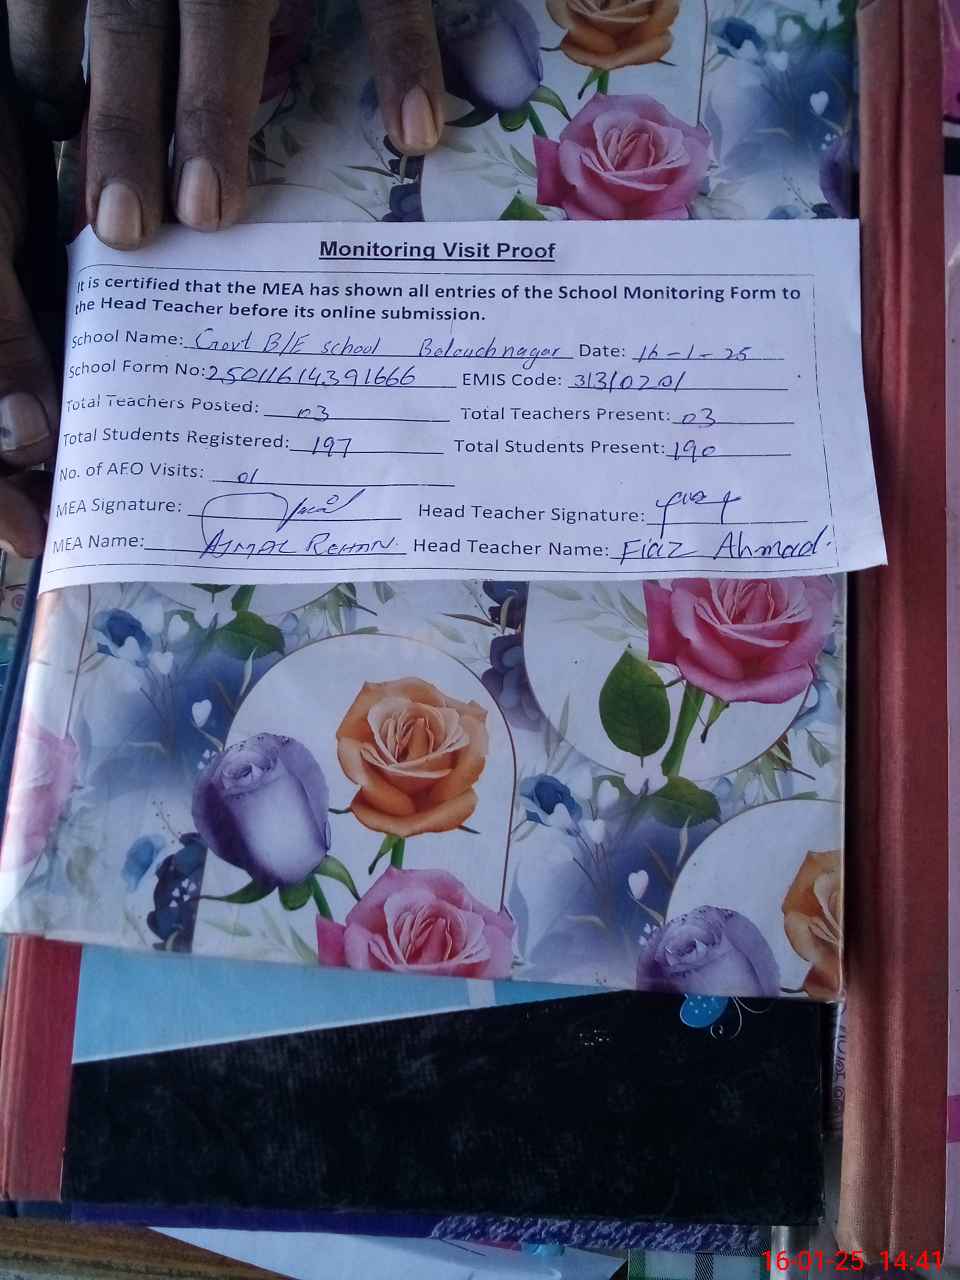 Monitoring Visit Proof
It is certified that the MEA has shown all entries of the School Monitoring Form to
the Head Teacher before its online submission.
School Name: Govt B/E school Belouchnagar Date: 16-1-25
School Form No: 25011614391666 EMIS Code: 31310201
Total Teachers Posted: 03 Total Teachers Present: 03
Total Students Registered: 197 Total Students Present: 190
No. of AEO Visits: 01
MEA Signature: Head Teacher Signature:
MEA Name: AJMAL REHAN. Head Teacher Name: Fiaz Ahmad.
16-01-25 14:41